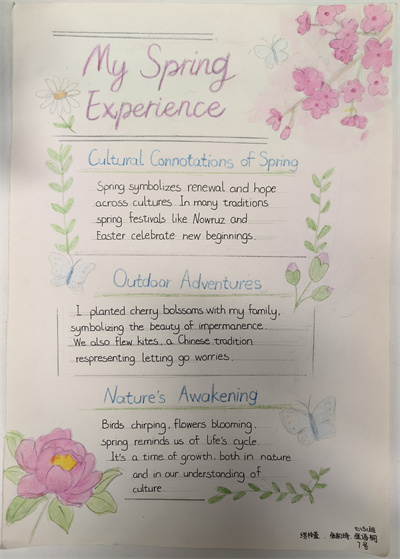 My Spring
Experience
Cultural Connotations of Spring
Spring symbolizes renewal and hope
across cultures. In many traditions
spring festivals like Nowruz and
Easter celebrate new beginnings.
Outdoor Adventures
I planted cherry bolssoms with my family,
symbolizing the beauty of impermanence.
We also flew kites, a Chinese tradition
respresenting letting go worries.
Nature's Awakening
Birds chirping, flowers blooming.
spring reminds us of life's cycle.
It's a time of growth, both in nature
and in our understanding of
culture.